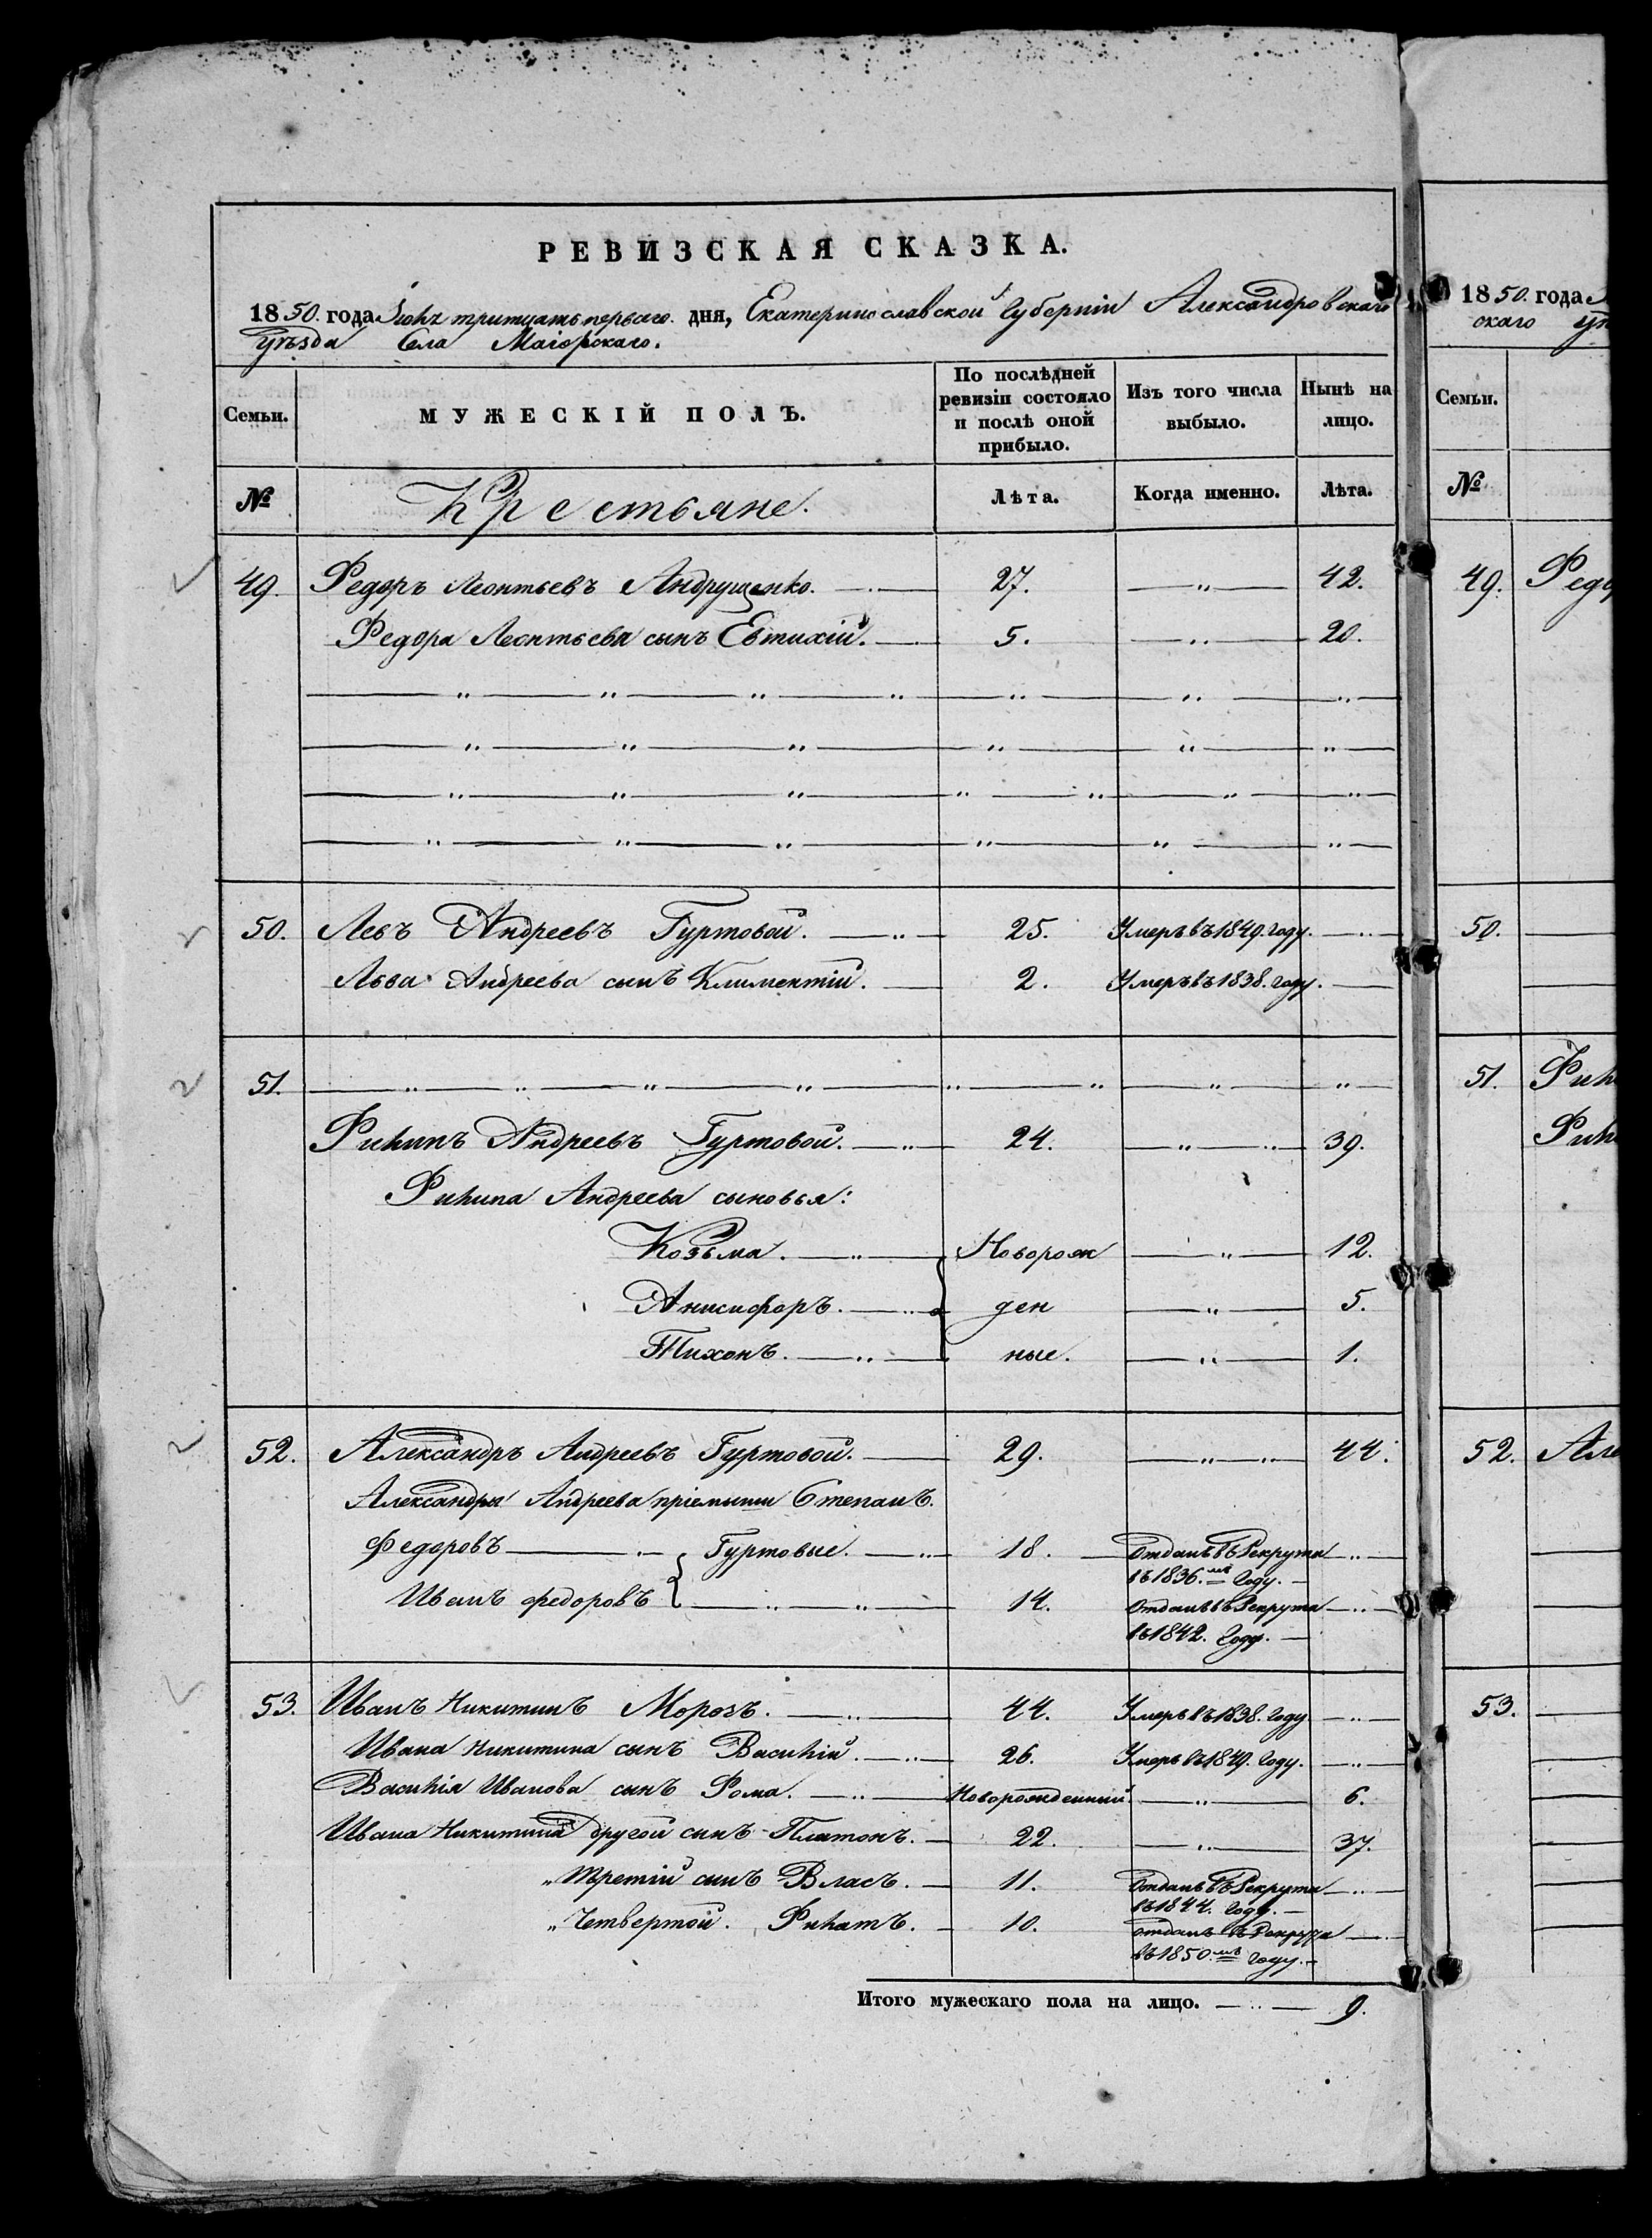 РЕВИЗСКАЯ СКАЗКА.
1850. года Іюля тритцать перваго. дня, Екатеринославской Губерніи Александровскаго
Уѣзда Села Маіорскаго.
Семьи. МУЖЕСКІЙ ПОЛЪ. По послѣдней ревизіи состояло и послѣ оной прибыло. Изъ того числа выбыло. Нынѣ на лицо.
№ Крестьяне. Лѣта. Когда именно. Лѣта.
49. Федоръ Леонтьевъ Андрущенко. 27. — „ — 42.
Федора Леонтьева сынъ Евтихій. 5. — „ — 20.
50. Левъ Андреевъ Гуртовой. 25. Умеръ въ 1849. году.
Льва Андреева сынъ Климентій. 2. Умеръ въ 1838. году.
51.
Филипъ Андреевъ Гуртовой. 24. — „ — 39.
Филипа Андреева сыновья:
Козьма. Новорож — „ — 12.
Анисифоръ. ден — „ — 5.
Тихонъ. ные. — „ — 1.
52. Александръ Андреевъ Гуртовой. 29. — „ — 44.
Александра Андреева пріемыши Степанъ
Федоровъ Гуртовые. 18. Отданъ въ Рекрута
въ 1836.мъ Году.
Иванъ Федоровъ 14. Отданъ въ Рекрута
въ 1842. Году.
53. Иванъ Никитинъ Морозъ. 44. Умеръ въ 1838. Году.
Ивана Никитина сынъ Василій. 26. Умеръ въ 1849. Году.
Василія Иванова сынъ Фома. Новорожденный. — „ — 6.
Ивана Никитина другой сынъ Платонъ. 22. — „ — 37.
„ третій сынъ Власъ. 11. Отданъ въ Рекрута
въ 1844. Году.
„ Четвертой. Филатъ. 10. Отданъ въ Рекрута
въ 1850.мъ Году.
Итого мужескаго пола на лицо. 9.
1850. года
скаго
Семьи.
№
49. Федо
50.
51. Фил
Фил
52. Але
53.